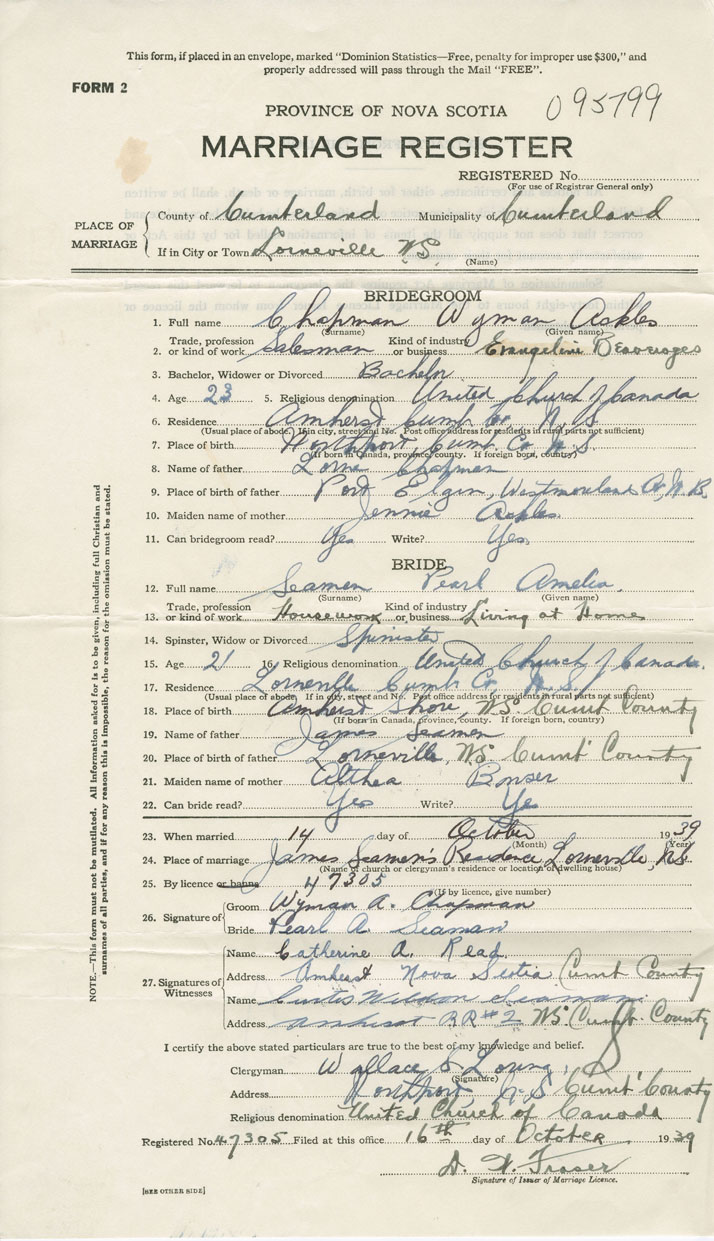 This form, if placed in an envelope, marked "Dominion Statistics—Free, penalty for improper use $300," and
properly addressed will pass through the Mail "FREE".
FORM 2
PROVINCE OF NOVA SCOTIA
095799
MARRIAGE REGISTER
REGISTERED No.
(For use of Registrar General only)
PLACE OF MARRIAGE
County of Cumberland Municipality of Cumberland
If in City or Town Lorneville NS
(Name)
BRIDEGROOM
1. Full name Chapman Wyman Ackles
(Surname) (Given name)
2. Trade, profession or kind of work Salesman Kind of industry or business Evangeline Beverages
3. Bachelor, Widower or Divorced Bachelor
4. Age 23 5. Religious denomination United Church of Canada
6. Residence Amherst Cumb Co. N.S
(Usual place of abode. If in city, street and No. Post office address for residents in rural parts not sufficient)
7. Place of birth Northport Cumb Co N.S.
(If born in Canada, province, county. If foreign born, country)
8. Name of father Lorne Chapman
9. Place of birth of father Port Elgin, Westmoreland Co, N.B.
10. Maiden name of mother Jennie Ackles.
11. Can bridegroom read? Yes Write? Yes.
BRIDE
12. Full name Seamen Pearl Amelia.
(Surname) (Given name)
13. Trade, profession or kind of work Housework Kind of industry or business Living at Home
14. Spinster, Widow or Divorced Spinister
15. Age 21 16. Religious denomination United Church of Canada.
17. Residence Lorneville Cumb Co. N.S.
(Usual place of abode. If in city, street and No. Post office address for residents in rural parts not sufficient)
18. Place of birth Amherst Shore, NS Cumb County
(If born in Canada, province, county. If foreign born, country)
19. Name of father James Seamen
20. Place of birth of father Lorneville, NS Cumb County
21. Maiden name of mother Althea Bonser
22. Can bride read? Yes Write? Yes
23. When married 14 day of October 1939
(Month) (Year)
24. Place of marriage James Seamen's Residence Lorneville, NS
(Name of church or clergyman's residence or location of dwelling house)
25. By licence or banns 47305
(If by licence, give number)
26. Signature of
Groom Wyman A. Chapman
Bride Pearl A. Seaman
27. Signatures of Witnesses
Name Catherine A. Read
Address Amherst Nova Scotia Cumb County
Name Curtis Weldon Seaman
Address Amherst RR#2 NS Cumb. County
I certify the above stated particulars are true to the best of my knowledge and belief.
Clergyman Wallace
(Signature)
Address Northport N.S Cumb County
Religious denomination United Church of Canada
Registered No. 47305 Filed at this office 16th day of October 1939
D. W. Fraser
Signature of Issuer of Marriage Licence.
[SEE OTHER SIDE]
NOTE.—This form must not be mutilated. All information asked for is to be given, including full Christian and
surnames of all parties, and if for any reason this is impossible, the reason for the omission must be stated.